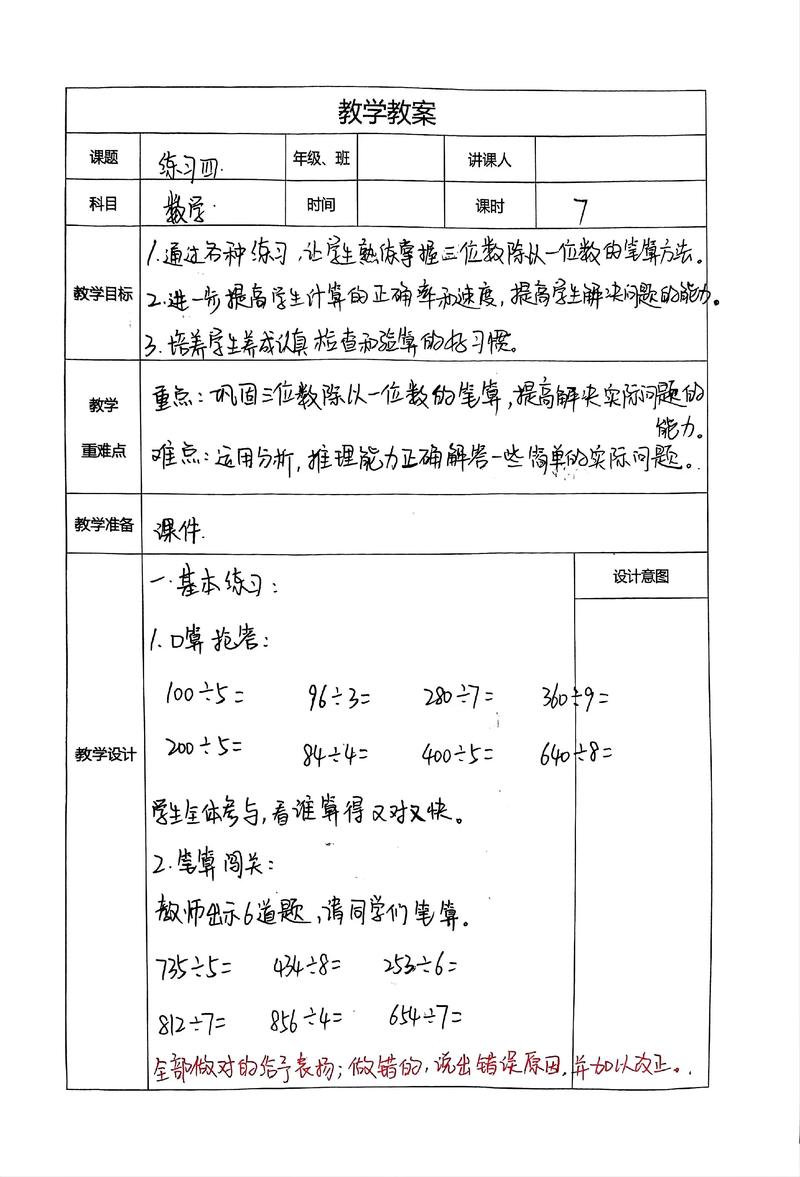 教学教案
课题 练习四. 年级、班 讲课人
科目 数学. 时间 课时 7
教学目标
1.通过各种练习,让学生熟练掌握三位数除以一位数的笔算方法。
2.进一步提高学生计算的正确率和速度,提高学生解决问题的能力。
3.培养学生养成认真检查和验算的好习惯。
教学
重难点
重点:巩固三位数除以一位数的笔算,提高解决实际问题的
能力。
难点:运用分析,推理能力正确解答一些简单的实际问题。
教学准备 课件.
教学设计
设计意图
一.基本练习:
1.口算抢答:
100÷5= 96÷3= 280÷7= 360÷9=
200÷5= 84÷4= 400÷5= 640÷8=
学生全体参与,看谁算得又对又快。
2.笔算闯关:
教师出示6道题,请同学们笔算。
735÷5= 434÷8= 253÷6=
812÷7= 856÷4= 654÷7=
全部做对的给予表扬;做错的,说出错误原因,并加以改正。